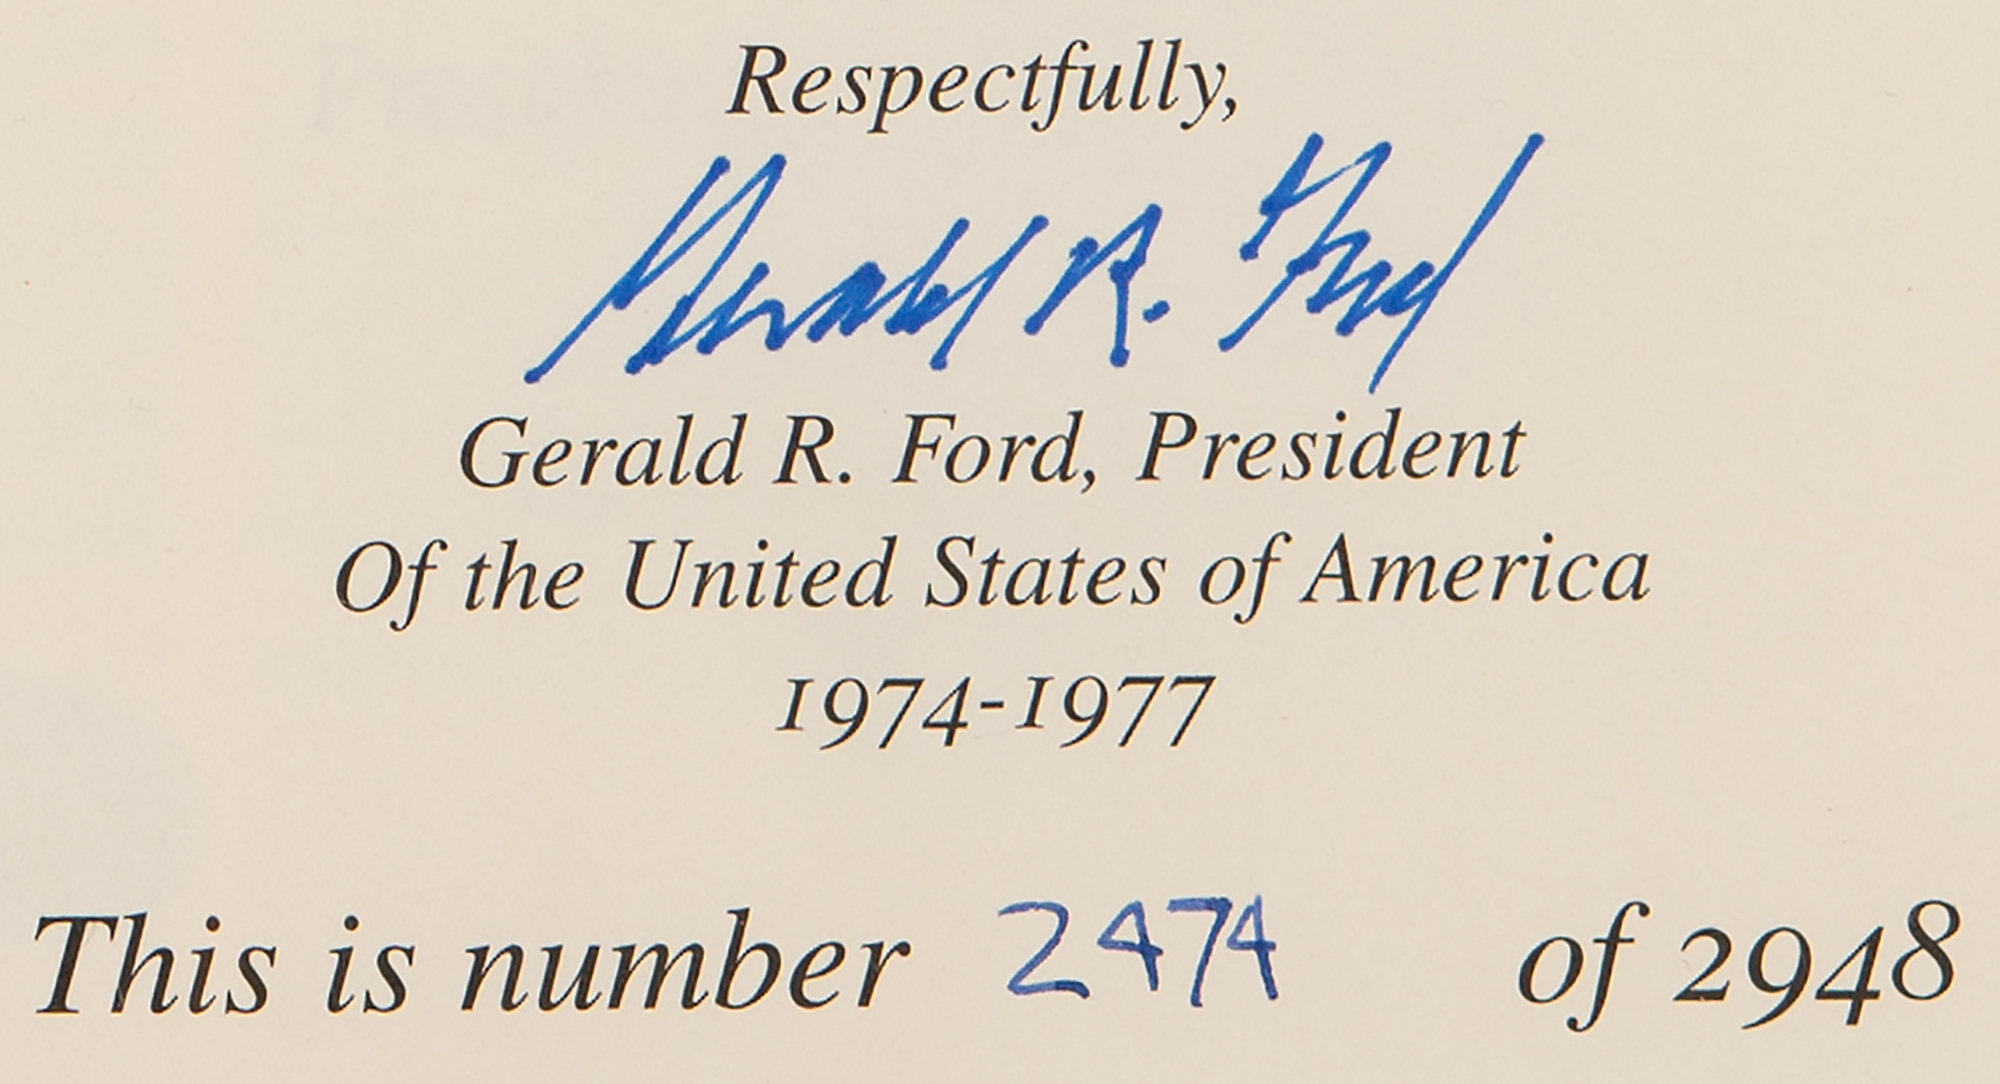 Respectfully,
Gerald R. Ford
Gerald R. Ford, President
Of the United States of America
1974-1977
This is number 2474 of 2948